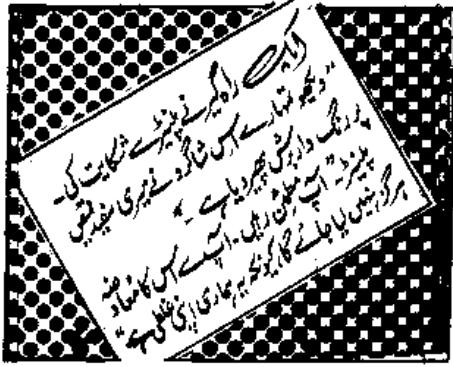 ایک راہگیر نے پینٹر سے شکایت کی۔
"دیکھو تمہارے اس شاگرد نے میری سفید قمیض
پر رنگ دار برش پھیر دیا ہے۔"
پینٹر "آپ مطمئن رہیں۔ آپ سے اس کا معاوضہ
ہرگز نہیں لیا جائے گا کیونکہ یہ ہماری اپنی غلطی ہے"